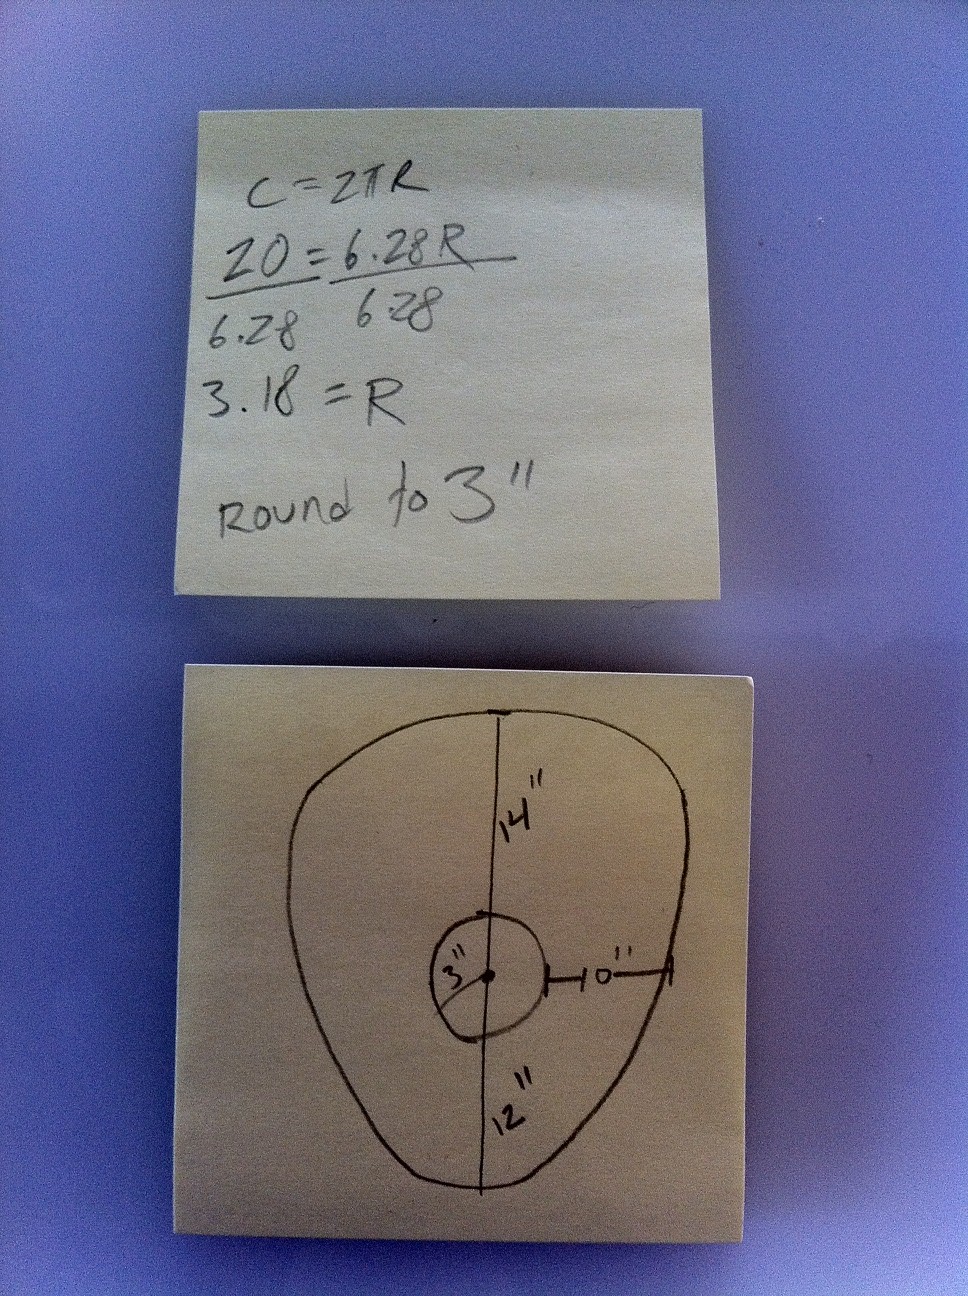 C = 2πR
20 = 6.28R
6.28 6.28
3.18 = R
Round to 3"
14"
3"
10"
12"